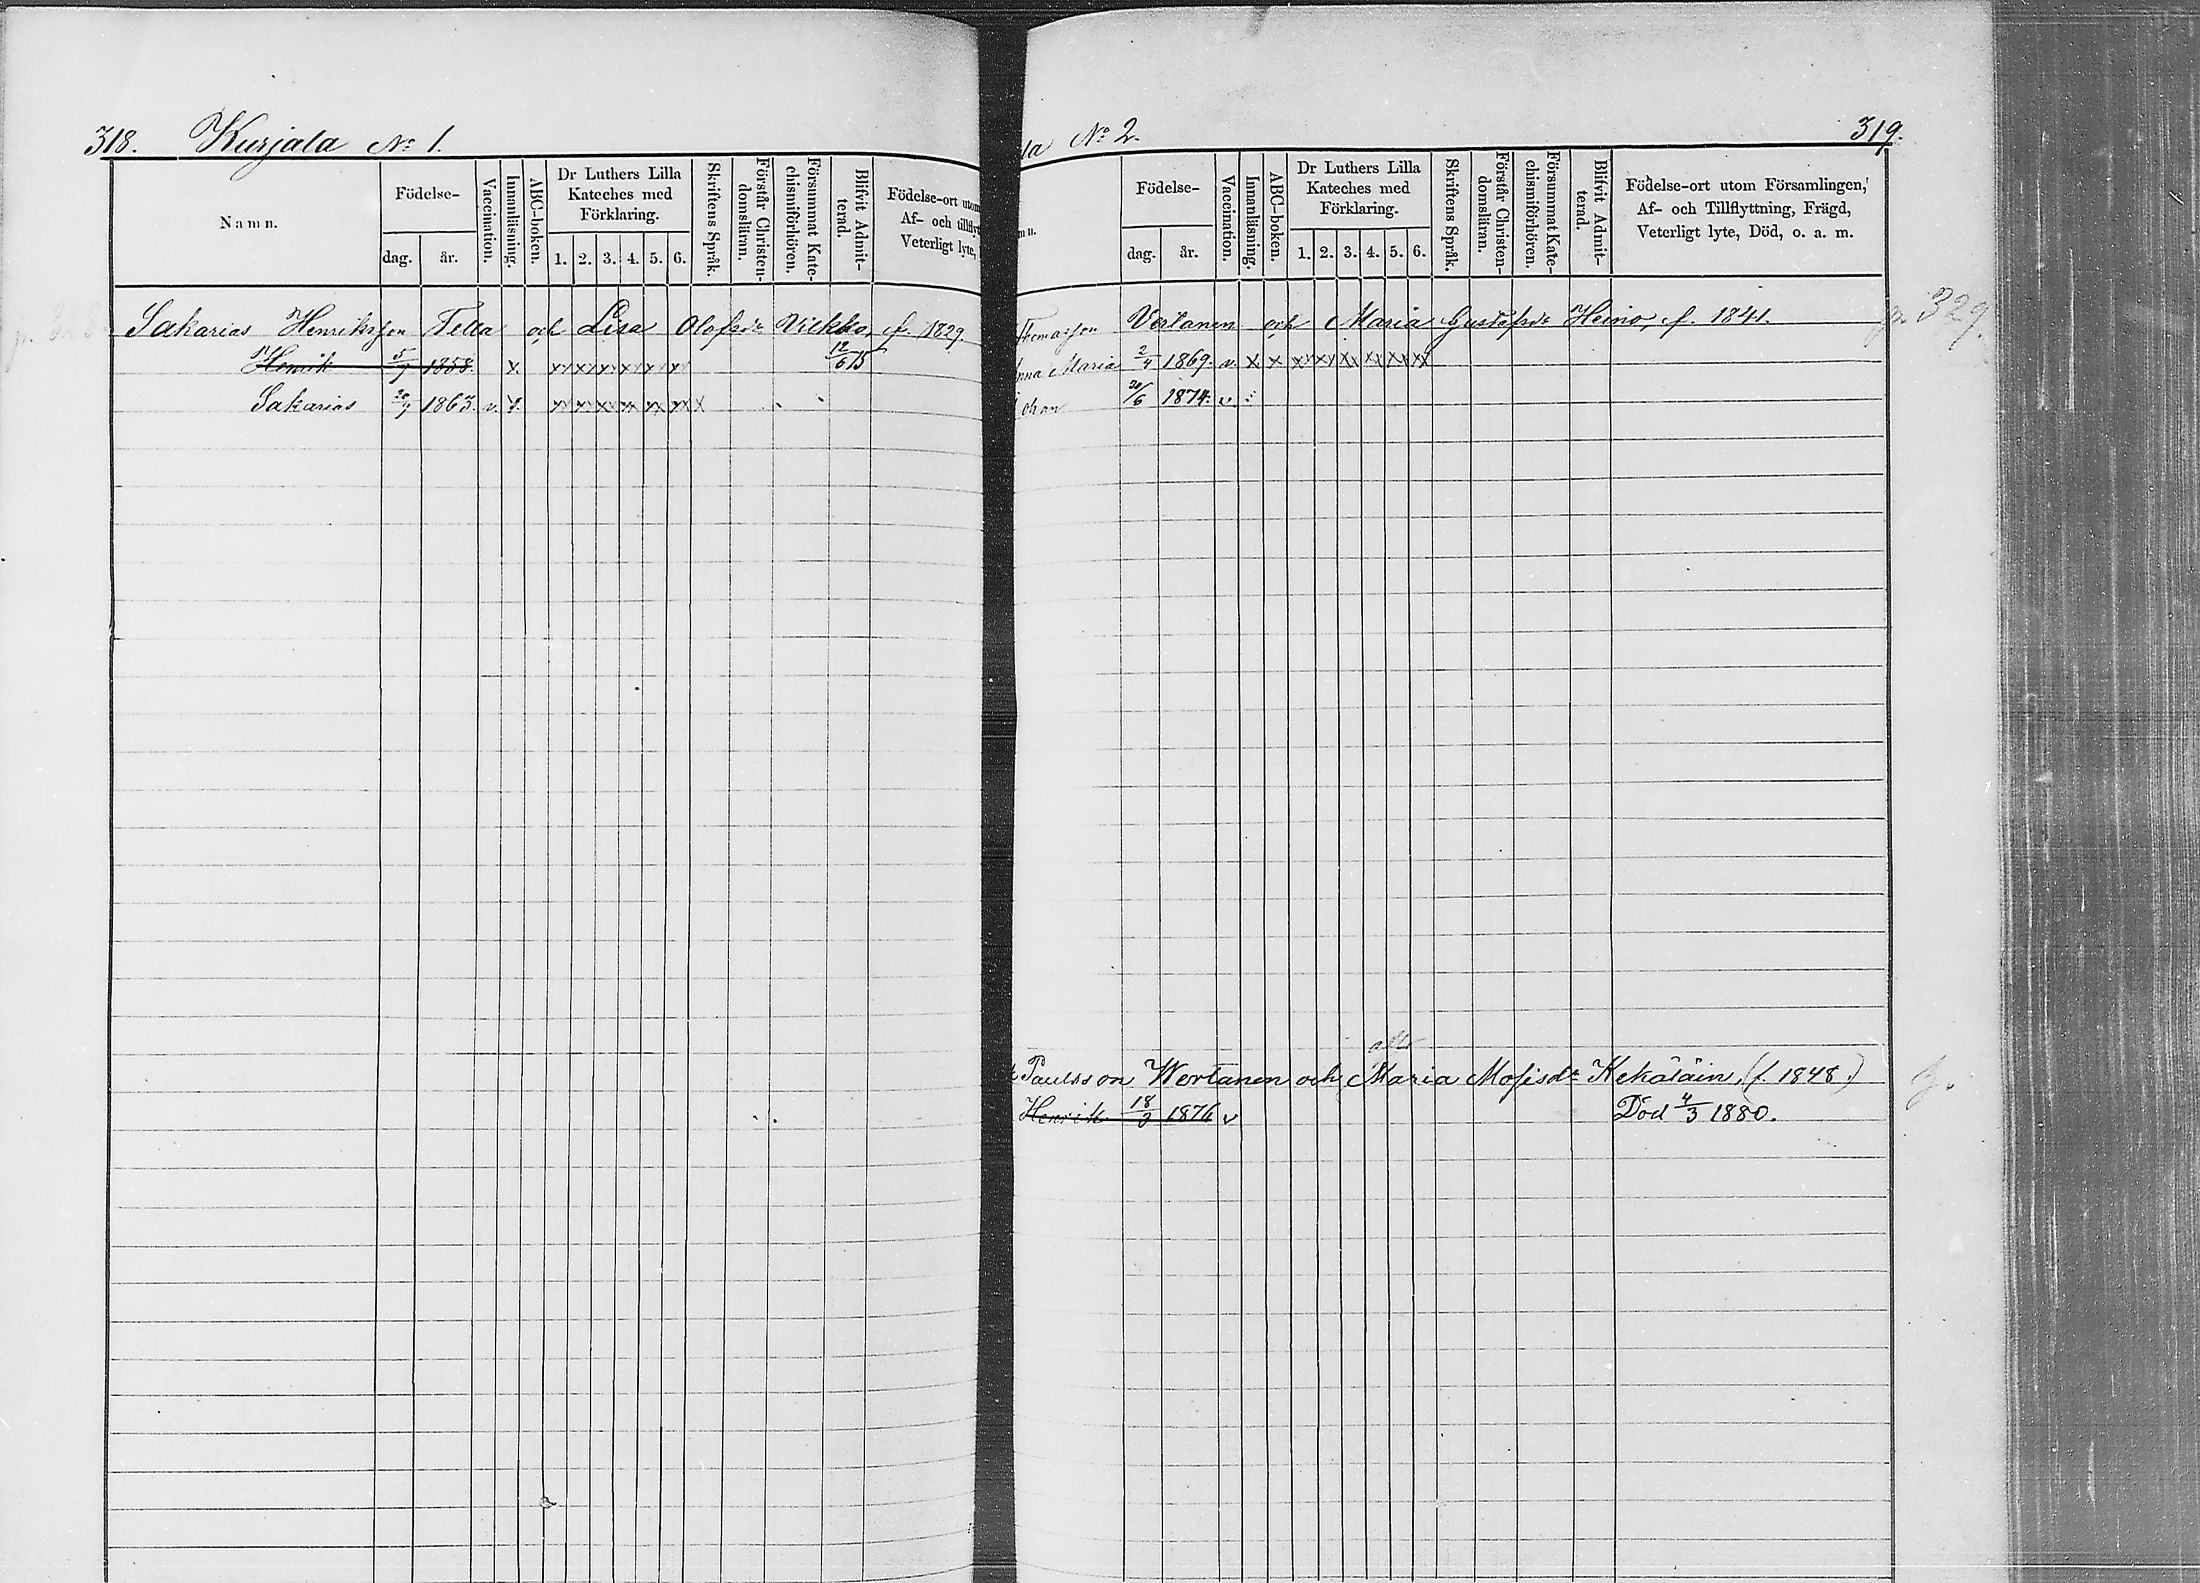 318. Kurjala No 1.
Namn.
Födelse-
dag. år.
Vaccination.
Innanläsning.
ABC-boken.
Dr Luthers Lilla
Kateches med
Förklaring.
1. 2. 3. 4. 5. 6.
Skriftens Språk.
Förstår Christen-
domsläran.
Försummat Kate-
chismiförhören.
Blifvit Admit-
terad.
Födelse-ort utom
Af- och tillfly
Veterligt lyte,
Sakarias Henriksson Tella och Lisa Olofsdr f. 1829.
Henrik 5/9 1858. x xx xx xx xx xx xx 12/6 75
Sakarias 20/9 1863. v. xx xx xx xx xx xx x
la No 2. 319.
Födelse-
dag. år.
Vaccination.
Innanläsning.
ABC-boken.
Dr Luthers Lilla
Kateches med
Förklaring.
1. 2. 3. 4. 5. 6.
Skriftens Språk.
Förstår Christen-
domsläran.
Försummat Kate-
chismiförhören.
Blifvit Admit-
terad.
Födelse-ort utom Församlingen,
Af- och Tillflyttning, Frägd,
Veterligt lyte, Död, o. a. m.
Thomasson Vertanen och Maria Gustafsdr Heino, f. 1841. p. 329.
nna Maria 2/4 1869. v. x x xx xx xx xx xx xx
ohan 20/6 1874. v.
Paulsson Wertanen och Maria Mosisdr Kekäläin, (f. 1848.)
Henrik 18/3 1876 v Död 4/3 1880.